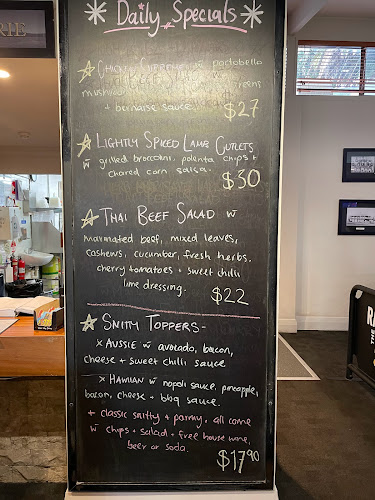 Daily Specials
RIE
Chicken Supreme w portobello
mushroom greens
+ bernaise sauce. $27
Lightly Spiced Lamb Cutlets
w grilled broccolini, polenta chips +
chared corn salsa. $30
Thai Beef Salad w
marinated beef, mixed leaves,
cashews, cucumber, fresh herbs,
cherry tomatoes + sweet chilli
lime dressing. $22
Snitty Toppers-
x Aussie w avocado, bacon,
cheese + sweet chilli sauce
x Hawiian w napoli sauce, pineapple,
bacon, cheese + bbq sauce.
+ classic snitty + parmy, all come
w chips + salad + free house wine,
beer or soda.
$17.90